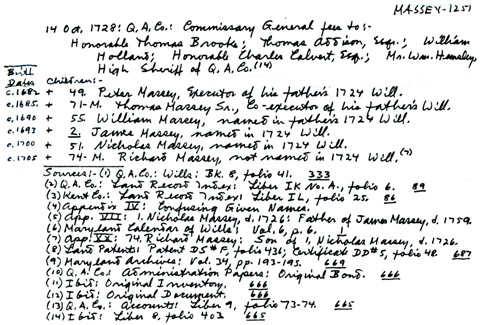 MASSEY-1251
14 Oct. 1728: Q.A.Co.: Commissary General fees to:-
Honorable Thomas Brooke; Thomas Addison, Esqr.; William
Holland; Honorable Charles Calvert, Esq.; Mr. Wm. Hemsley,
High Sheriff of Q.A.Co.(14)
Birth
Dates Children:-
c.1682 + 49. Peter Massey, Executor of his father's 1724 Will.
c.1685. + 71-M. Thomas Massey Sr., Co-executor of his father's 1724 Will.
c.1690 + 55. William Massey, named in father's 1724 Will.
c.1693 + 2. James Massey, named in 1724 Will.
c.1700 + 51. Nicholas Massey, named in 1724 Will.
c.1705 + 74-M. Richard Massey, not named in 1724 Will.(7)
Sources:- (1) Q.A.Co.: Wills: BK. 8, folio 41. 333
(2) Q.A.Co.: Land Record Index: Liber IK No. A., folio 6. 89
(3) Kent Co.: Land Record Index: Liber IL, folio 25. 86
(4) Appendix IV: Confusing Given Names.
(5) App. VII: 1. Nicholas Massey, d. 1726: Father of James Massey, d. 1759.
(6) Maryland Calendar of Wills: Vol. 6, p. 6. 1
(7) App. XX: 74. Richard Massey: Son of 1. Nicholas Massey, d. 1726.
(8) Land Patents: Patent DS# A, folio 431; Certificate DD# 5, folio 48. 687
(9) Maryland Archives: Vol. 34, pp. 193-195. 669
(10) Q.A.Co.: Administration Papers: Original Bond. 666
(11) Ibid: Original Inventory. 666
(12) Ibid: Original Document. 666
(13) Q.A.Co.: Accounts: Liber 9, folio 73-74. 665
(14) Ibid: Liber 8, folio 403. 665